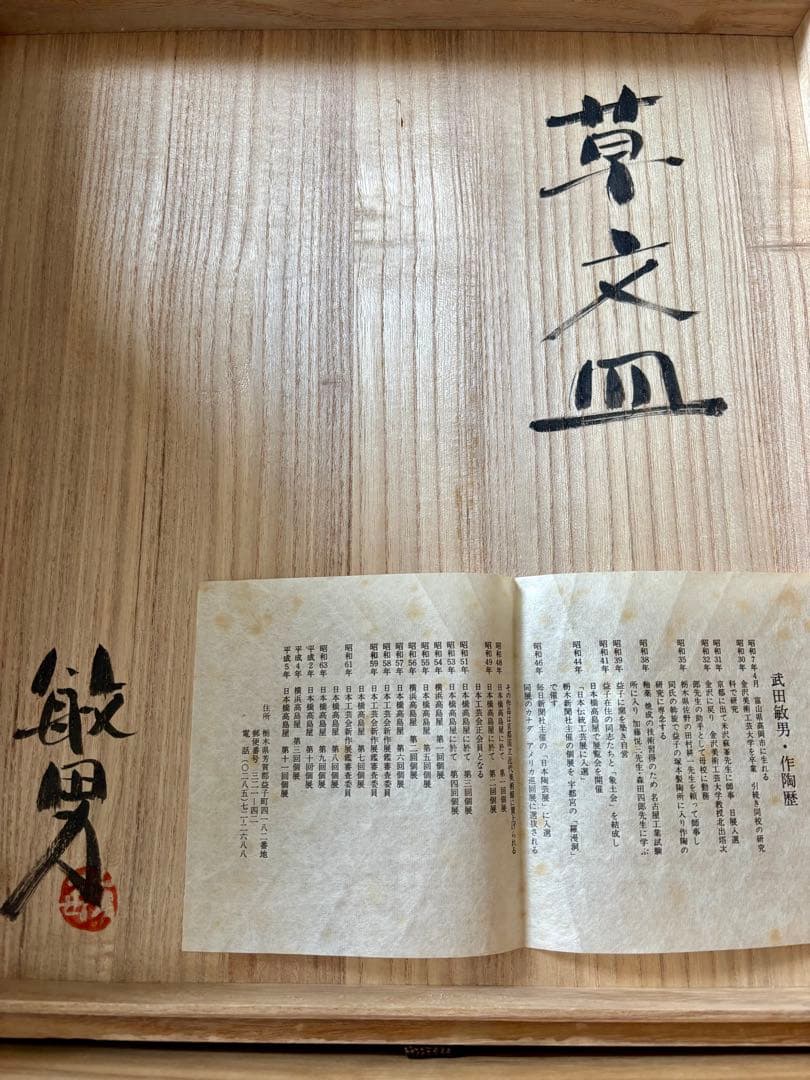 草文皿
敏男
武田敏男・作陶歴
昭和7年4月 富山県高岡市に生れる
昭和30年 金沢美術工芸大学を卒業 引続き同校の研究
科で研究
昭和31年 京都に出て米沢蘇峯先生に師事 日展入選
昭和32年 金沢に戻り 金沢美術工芸大学教授北出塔次
郎先生の助手として母校に勤務
昭和35年 栃木県佐野の田村耕一先生を頼って師事し
同氏の斡旋で益子の塚本製陶所に入り作陶の
研究に専念する
昭和38年 釉薬 焼成の技術習得のため 名古屋工業試験
所に入り 加藤悦三先生・森田四郎先生に学ぶ
昭和39年 益子に窯を築き自営
昭和41年 益子在住の同志たちと「象土会」を結成し
日本橋高島屋で展覧会を開催
「日本伝統工芸展に入選」
昭和44年 栃木新聞社主催の個展を 宇都宮の「羅漫洞」
で催す
昭和46年 毎日新聞社主催の「日本陶芸展」に入選
同展のカナダ アメリカ巡回展に選抜される
昭和48年 日本橋高島屋に於て 第一回個展
昭和49年 日本橋高島屋に於て 第二回個展
日本工芸会正会員となる
昭和51年 日本橋高島屋に於て 第三回個展
昭和53年 日本橋高島屋に於て 第四回個展
昭和54年 横浜高島屋 第一回個展
昭和55年 日本橋高島屋 第五回個展
昭和56年 横浜高島屋 第二回個展
昭和57年 日本橋高島屋 第六回個展
昭和58年 日本工芸会新作展鑑審査委員
昭和59年 日本工芸会新作展鑑審査委員
日本橋高島屋 第七回個展
昭和61年 日本工芸会新作展鑑審査委員
日本橋高島屋 第八回個展
昭和63年 日本橋高島屋 第九回個展
平成2年 日本橋高島屋 第十回個展
平成4年 横浜高島屋 第三回個展
平成5年 日本橋高島屋 第十一回個展
住所 栃木県芳賀郡益子町四一八二番地
郵便番号 三二一ー四二
電話(〇二八五)七二ー二六八八